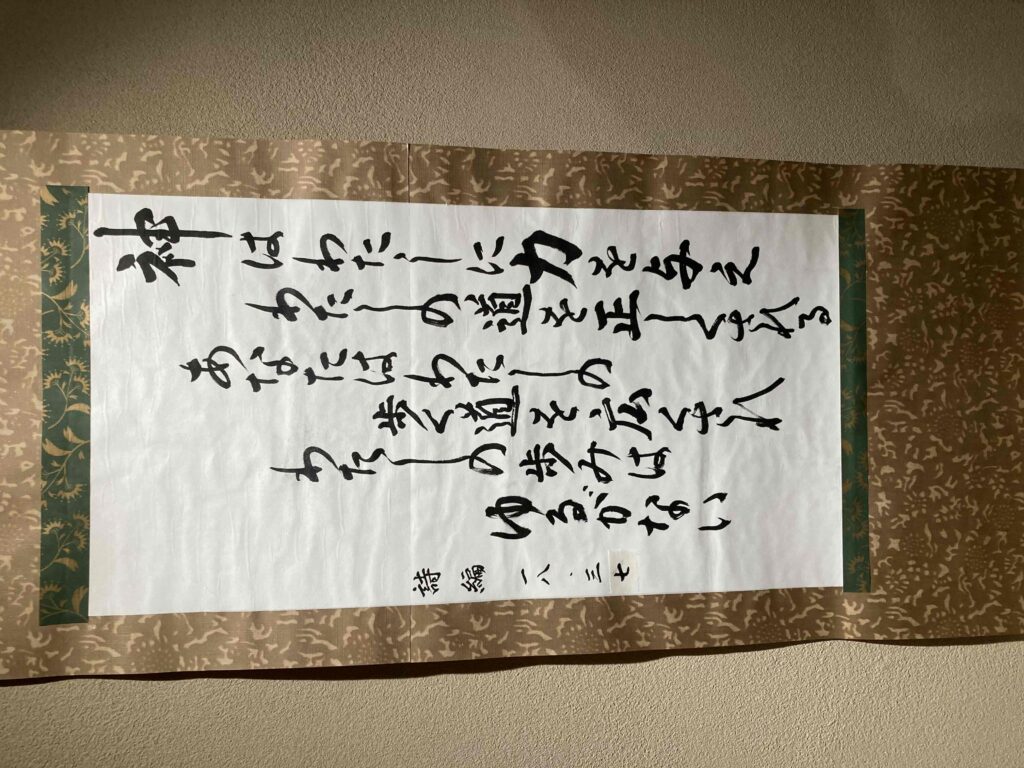 神はわたしに力を与え
わたしの道を正しくされる
あなたはわたしの
歩く道を広くされ
わたしの歩みは
ゆるがない
詩編 一八・三七